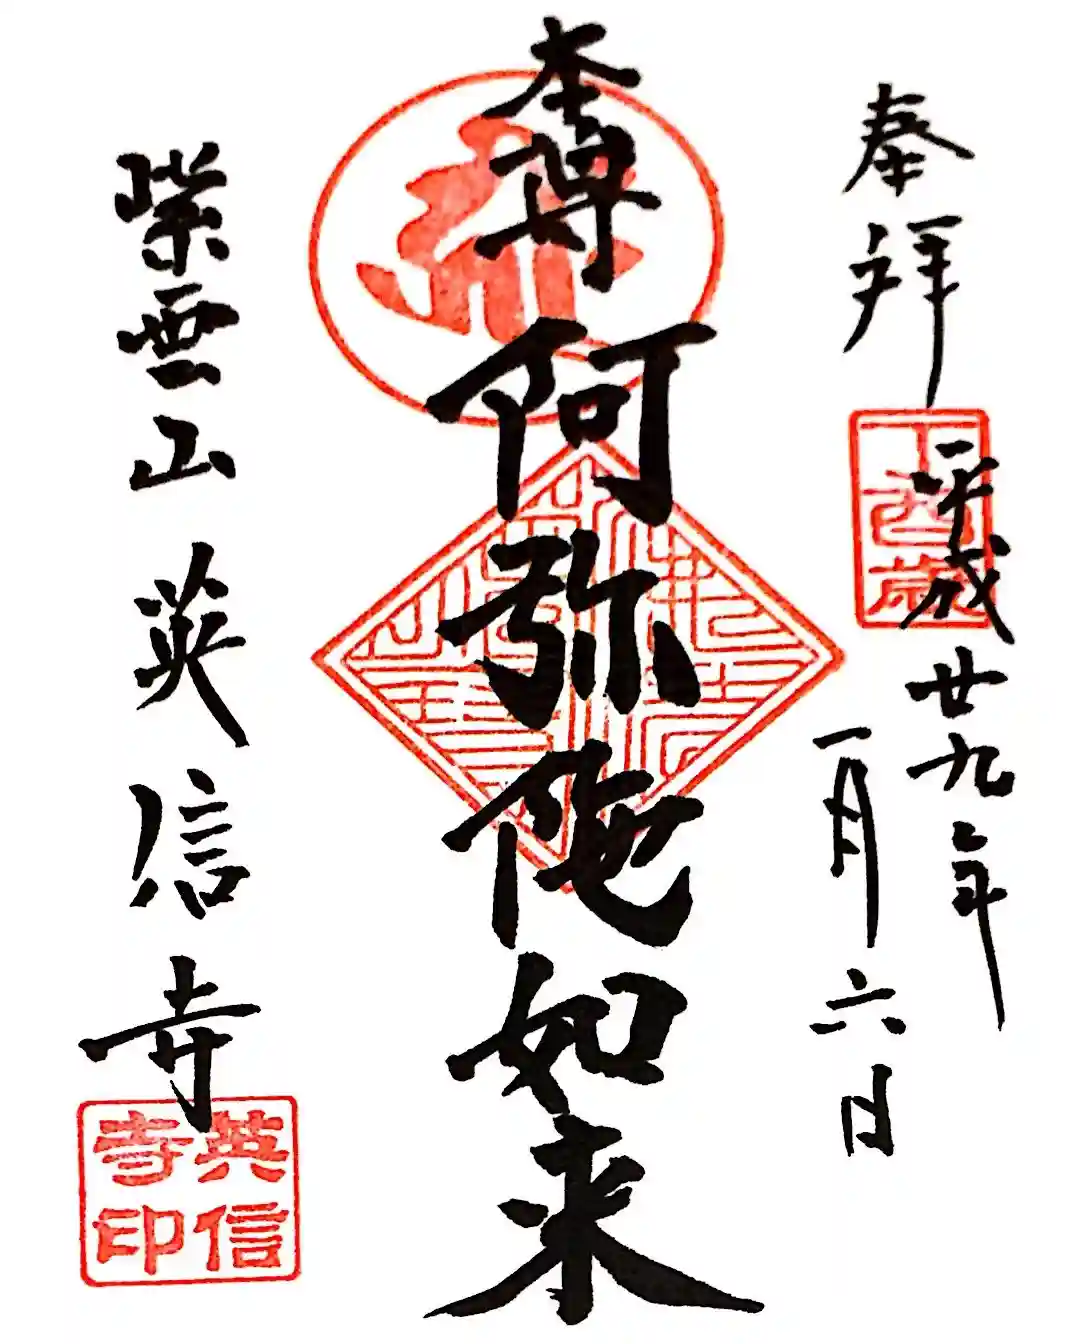 奉拝
平成廿九年
一月六日
本尊
阿弥陀如来
紫雲山 英信寺
英信
寺印